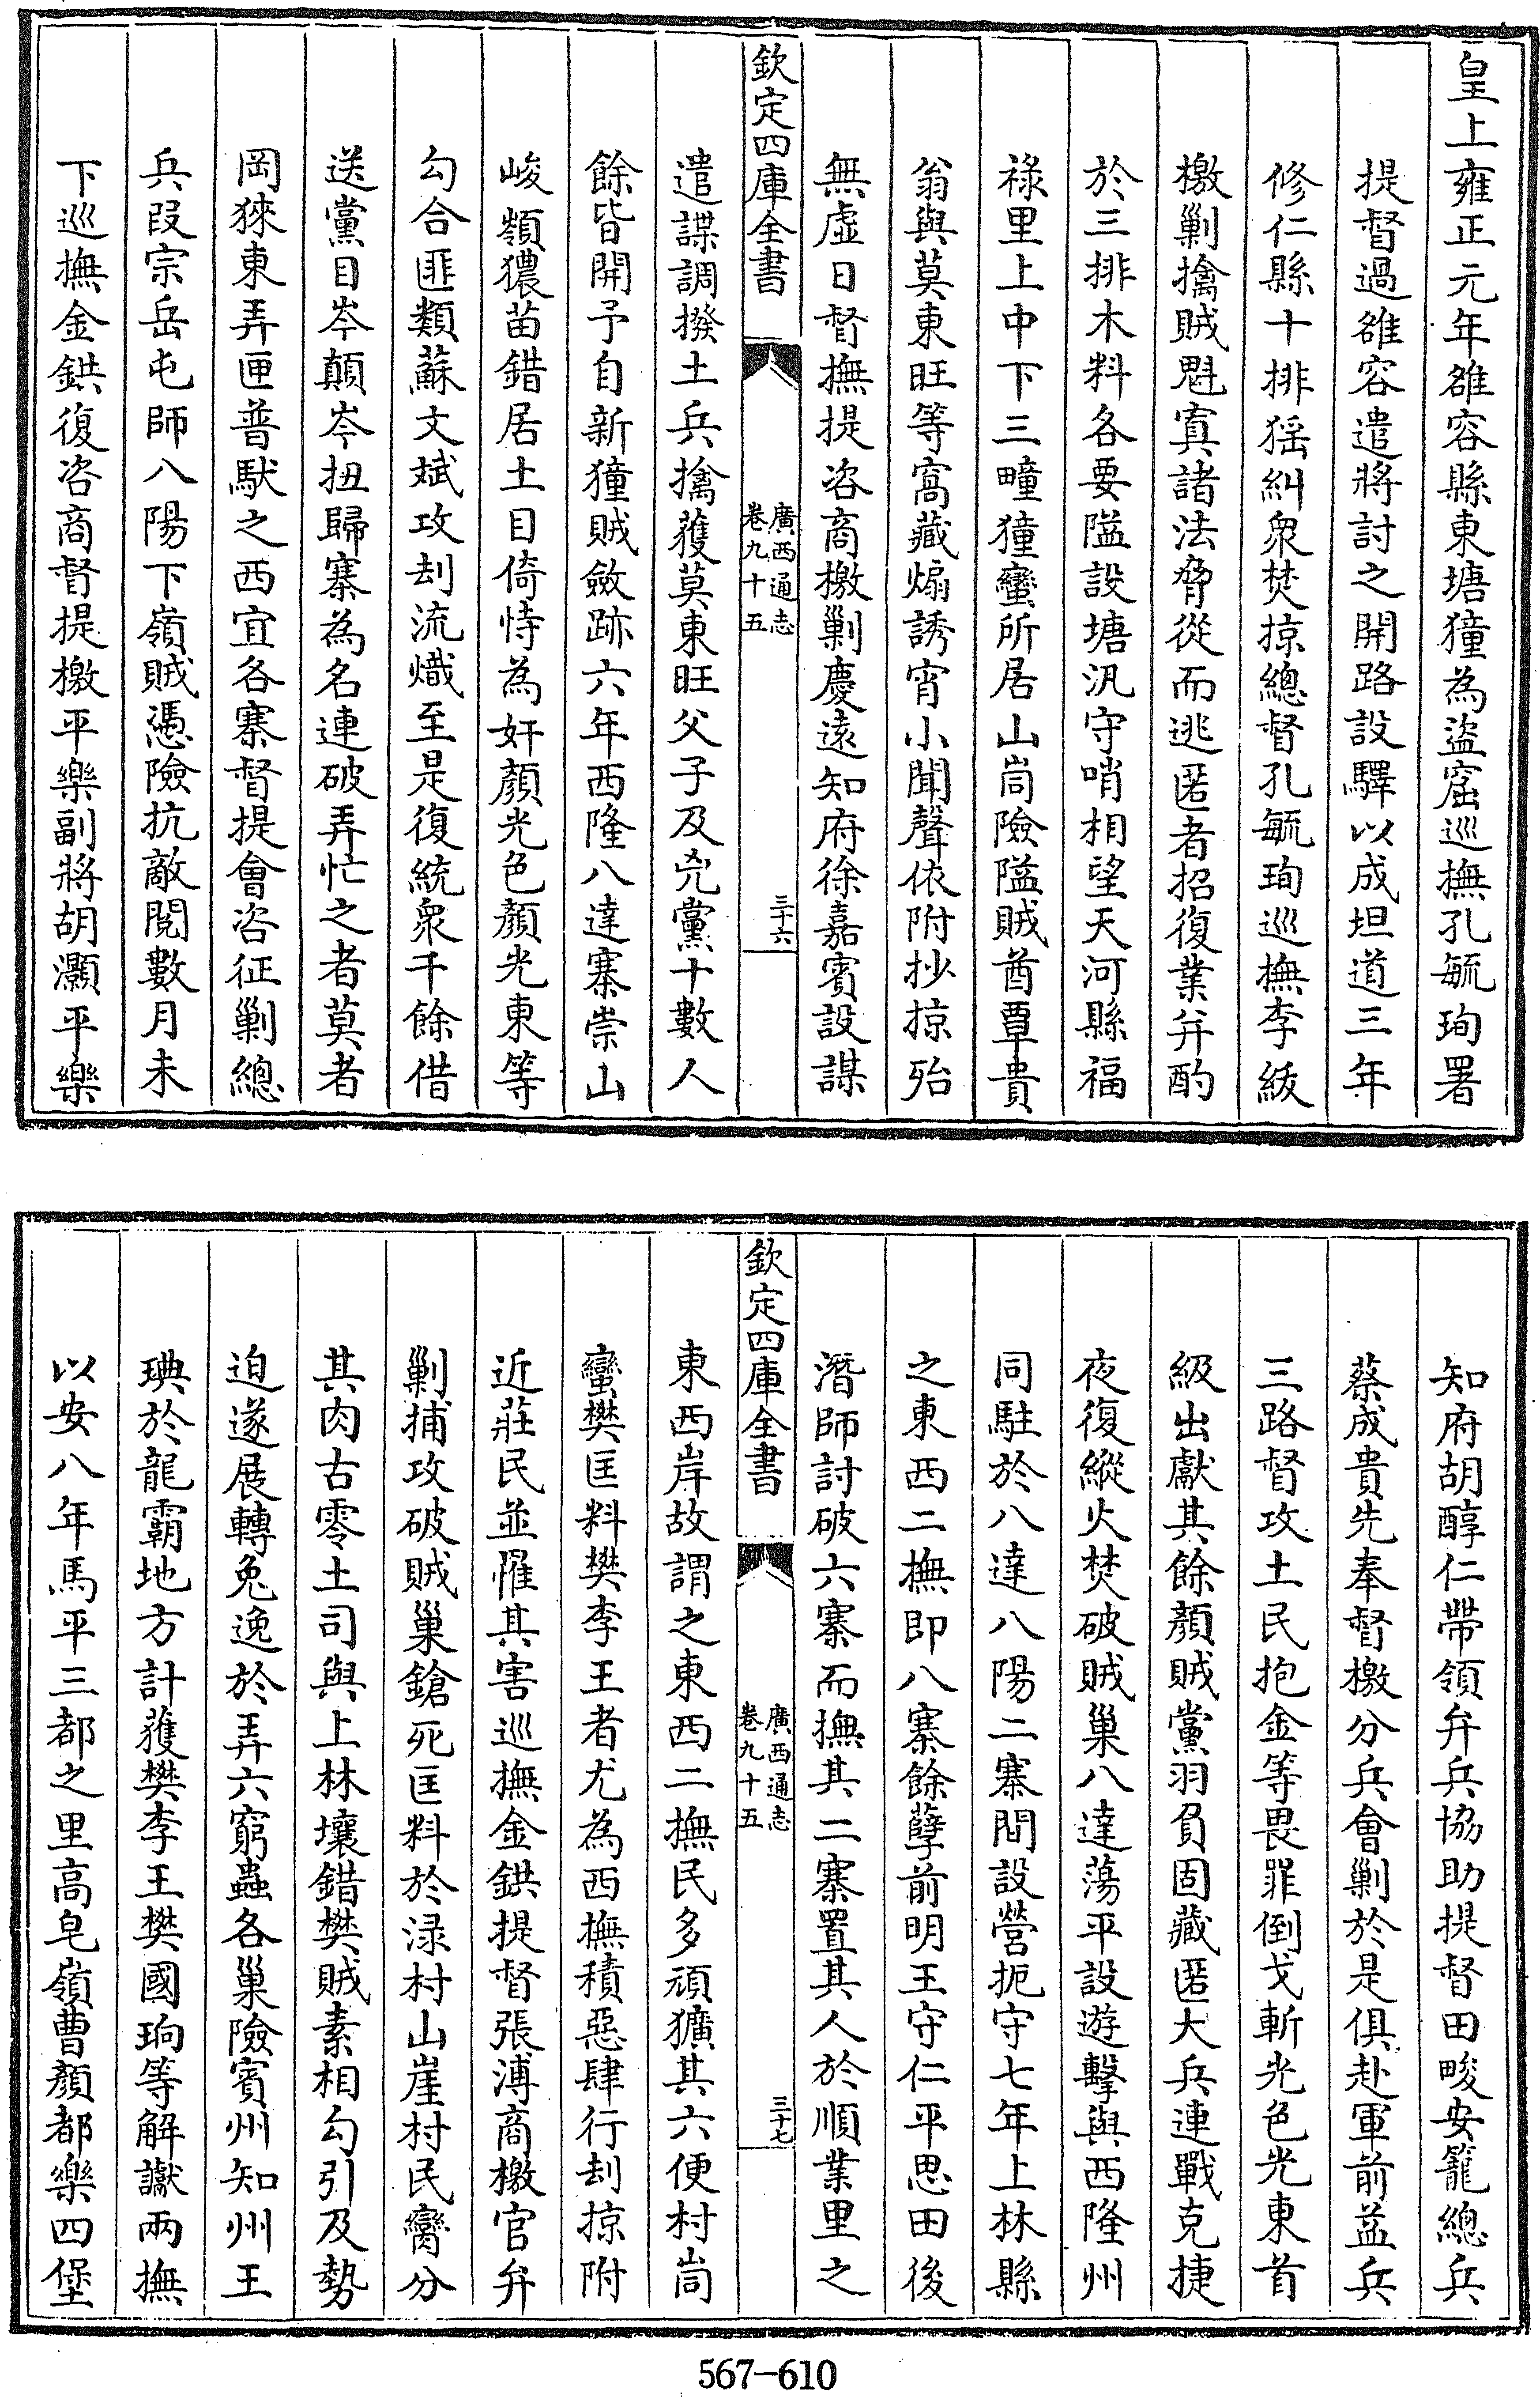 皇上雍正元年雒容縣東塘獞為盜窟巡撫孔毓珣署
提督過雒容遣將討之開路設驛以成坦道三年
修仁縣十排猺糾衆焚掠總督孔毓珣巡撫李紱
檄剿擒賊魁寘諸法脅從而逃匿者招復業弁酌
於三排木料各要隘設塘汛守哨相望天河縣福
祿里上中下三疃獞蠻所居山峝險隘賊酋覃貴
翁與莫東旺等窩藏煽誘宵小聞聲依附抄掠殆
無虛日督撫提咨商檄剿慶遠知府徐嘉賓設謀
欽定四庫全書
廣西通志
卷九十五
三十六
遣諜調撥土兵擒獲莫東旺父子及兇黨十數人
餘皆開予自新獞賊斂跡六年西隆八達寨崇山
峻嶺獞苗錯居土目倚恃為奸顏光色顏光東等
勾合匪類蘇文斌攻刦流熾至是復統衆千餘借
送黨目岑顛岑扭歸寨為名連破弄忙之者莫者
岡猍東弄匣普馱之西宜各寨督提會咨征剿總
兵段宗岳屯師八陽下嶺賊憑險抗敵閱數月未
下巡撫金鉷復咨商督提檄平樂副將胡灝平樂
知府胡醇仁帶領弁兵協助提督田畯安籠總兵
蔡成貴先奉督檄分兵會剿於是俱赴軍前益兵
三路督攻土民抱金等畏罪倒戈斬光色光東首
級出獻其餘顏賊黨羽負固藏匿大兵連戰克捷
夜復縱火焚破賊巢八達蕩平設遊擊與西隆州
同駐於八達八陽二寨間設營扼守七年上林縣
之東西二撫即八寨餘孽前明王守仁平思田後
潛師討破六寨而撫其二寨置其人於順業里之
欽定四庫全書
廣西通志
卷九十五
三十七
東西岸故謂之東西二撫民多頑獷其六便村峝
蠻樊匡料樊李王者尤為西撫積惡肆行刦掠附
近莊民並罹其害巡撫金鉷提督張溥商檄官弁
剿捕攻破賊巢鎗死匡料於渌村山崖村民臠分
其肉古零土司與上林壤錯樊賊素相勾引及勢
迫遂展轉兔逸於弄六窮蟲各巢險賓州知州王
㻞於龍霸地方計獲樊李王樊國珦等解讞兩撫
以安八年馬平三都之里高皂嶺曹顏都樂四堡
567-610